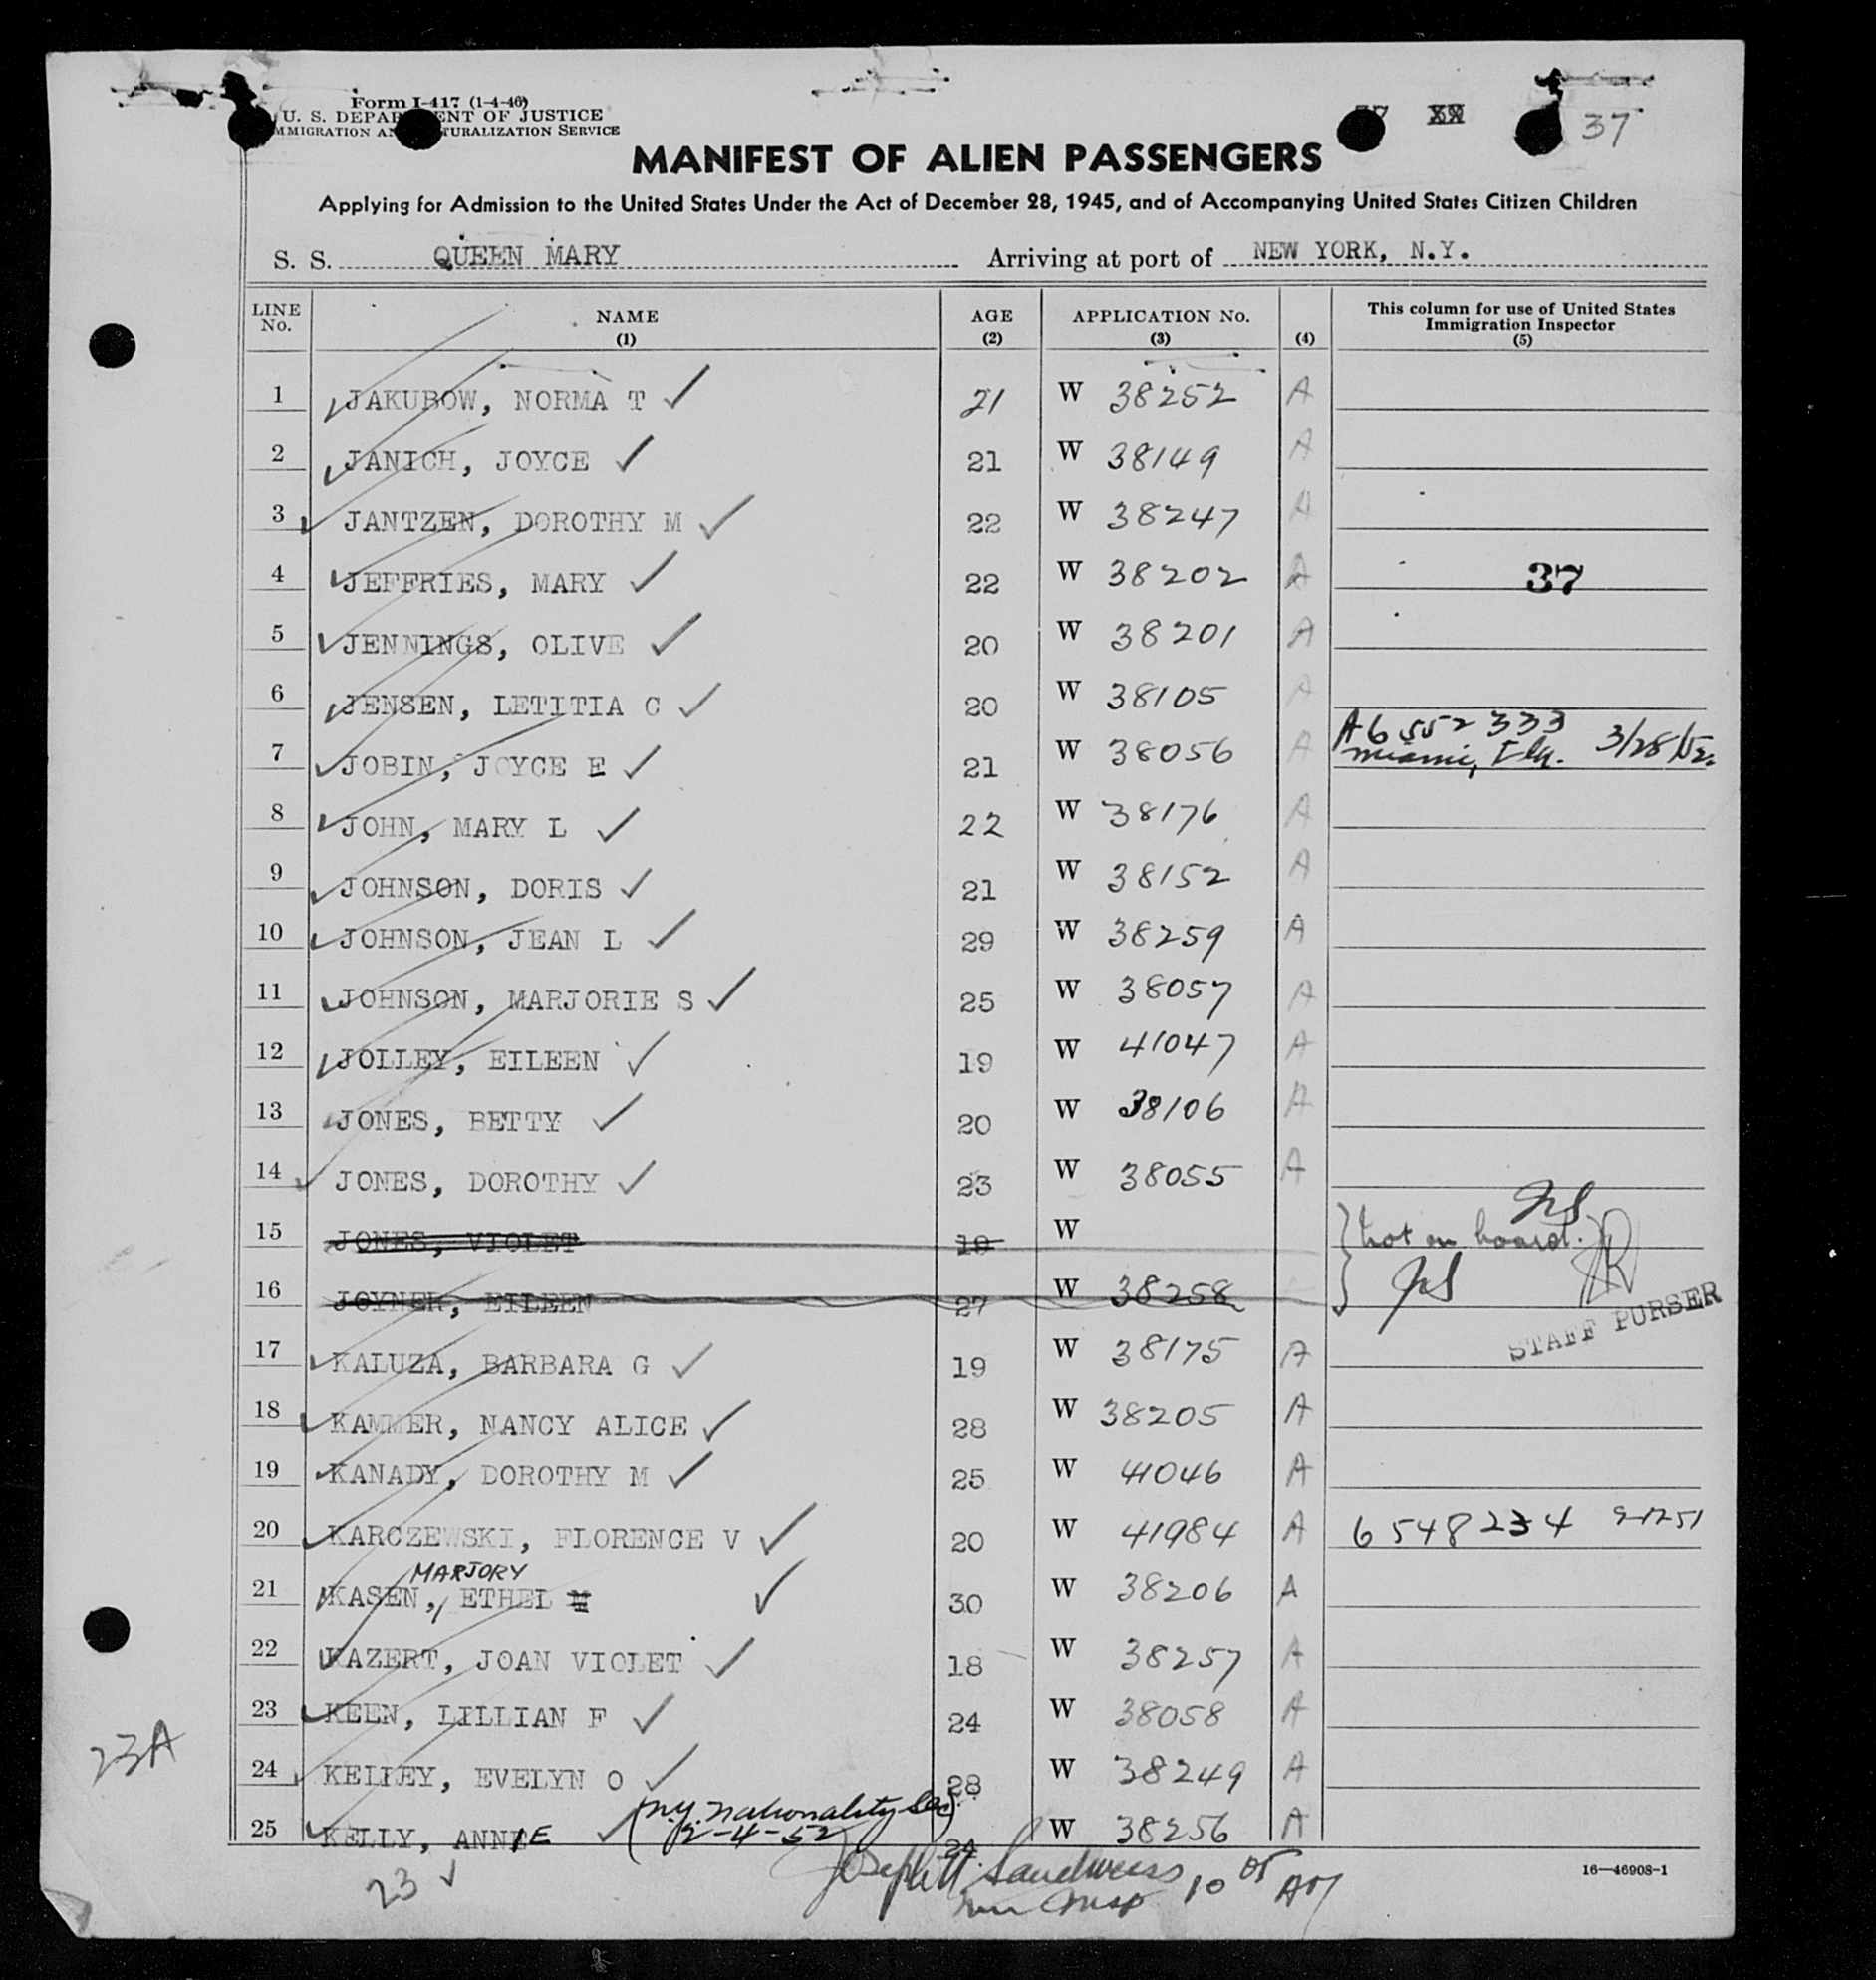 Form I-417 (1-4-46)
U. S. DEPARTMENT OF JUSTICE
IMMIGRATION AND NATURALIZATION SERVICE
37
37
MANIFEST OF ALIEN PASSENGERS
Applying for Admission to the United States Under the Act of December 28, 1945, and of Accompanying United States Citizen Children
S. S. QUEEN MARY Arriving at port of NEW YORK, N.Y.
LINE No. NAME (1) AGE (2) APPLICATION No. (3) (4) This column for use of United States Immigration Inspector (5)
1 JAKUBOW, NORMA T 21 W 38252 A
2 JANICH, JOYCE 21 W 38149 A
3 JANTZEN, DOROTHY M 22 W 38247 A
4 JEFFRIES, MARY 22 W 38202 A 37
5 JENNINGS, OLIVE 20 W 38201 A
6 JENSEN, LETITIA C 20 W 38105 A
7 JOBIN, JOYCE E 21 W 38056 A A6 552 333 Miami, Fla. 3/28/52
8 JOHN, MARY L 22 W 38176 A
9 JOHNSON, DORIS 21 W 38152 A
10 JOHNSON, JEAN L 29 W 38259 A
11 JOHNSON, MARJORIE S 25 W 38057 A
12 JOLLEY, EILEEN 19 W 41047 A
13 JONES, BETTY 20 W 38106 A
14 JONES, DOROTHY 23 W 38055 A
15 JONES, VIOLET 19 W Not on board.
16 JOYNER, EILEEN 27 W 38258
STAFF PURSER
17 KALUZA, BARBARA G 19 W 38175 A
18 KAMMER, NANCY ALICE 28 W 38205 A
19 KANADY, DOROTHY M 25 W 41046 A
20 KARCZEWSKI, FLORENCE V 20 W 41984 A 6548234 9-17-51
MARJORY
21 KASEN, ETHEL M 30 W 38206 A
22 KAZERT, JOAN VIOLET 18 W 38257 A
23 KEEN, LILLIAN F 24 W 38058 A
23A
24 KELLEY, EVELYN O 28 W 38249 A
25 KELLY, ANNIE (N.Y. Nationality Sec) 2-4-52 24 W 38256 A
23
Joseph Sandweiss 10 05 AM
Insp
16—46908-1